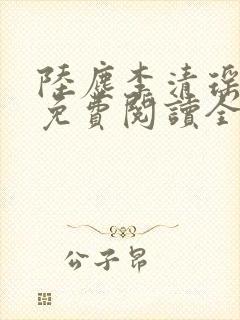 陸塵李清瑤
免費閱讀全
公子昂